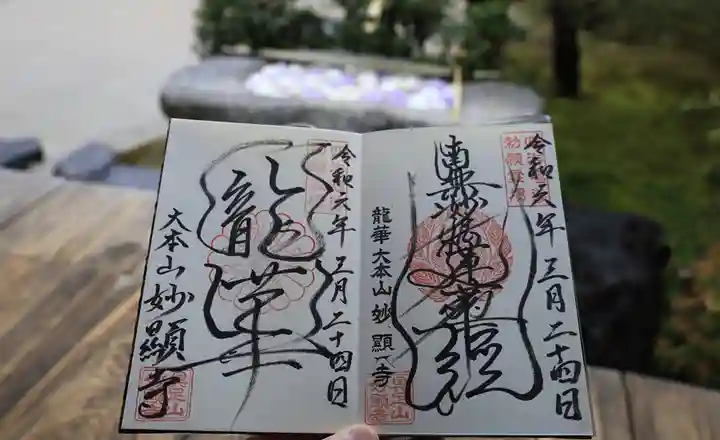 令和六年三月二十四日
南無妙法蓮華経
龍華大本山妙顯寺
令和六年三月二十四日
龍華
大本山妙顯寺